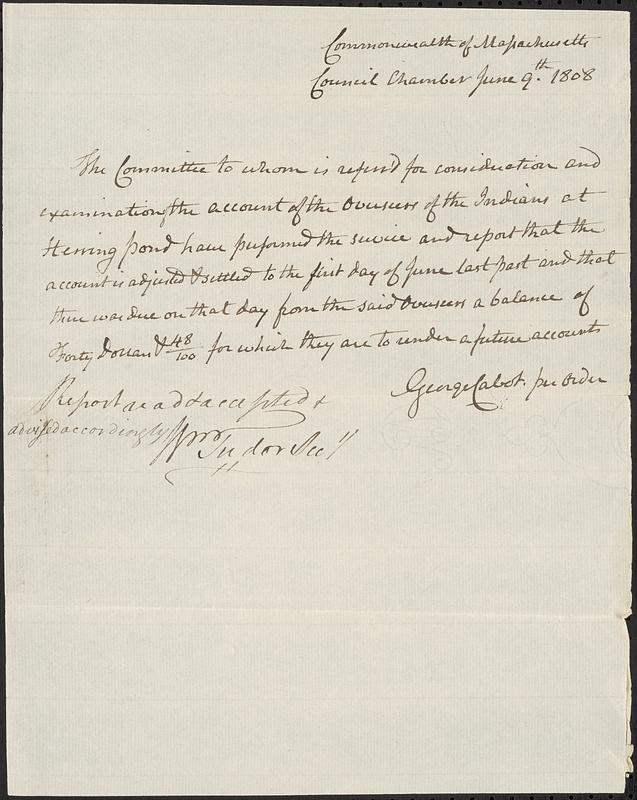 Commonwealth of Massachusetts
Council Chamber June 9th. 1808
The Committee to whom is referr'd for consideration and
examination of the account of the Overseers of the Indians at
Herring pond have performed the service and report that the
account is adjusted & settled to the first day of June last past and that
there was due on that day from the said Overseers a balance of
Forty dollars & 48/100 for which they are to render a future accounts
George Cabot. per Order
Report read & accepted &
advised accordingly Wm
Tudor Secy